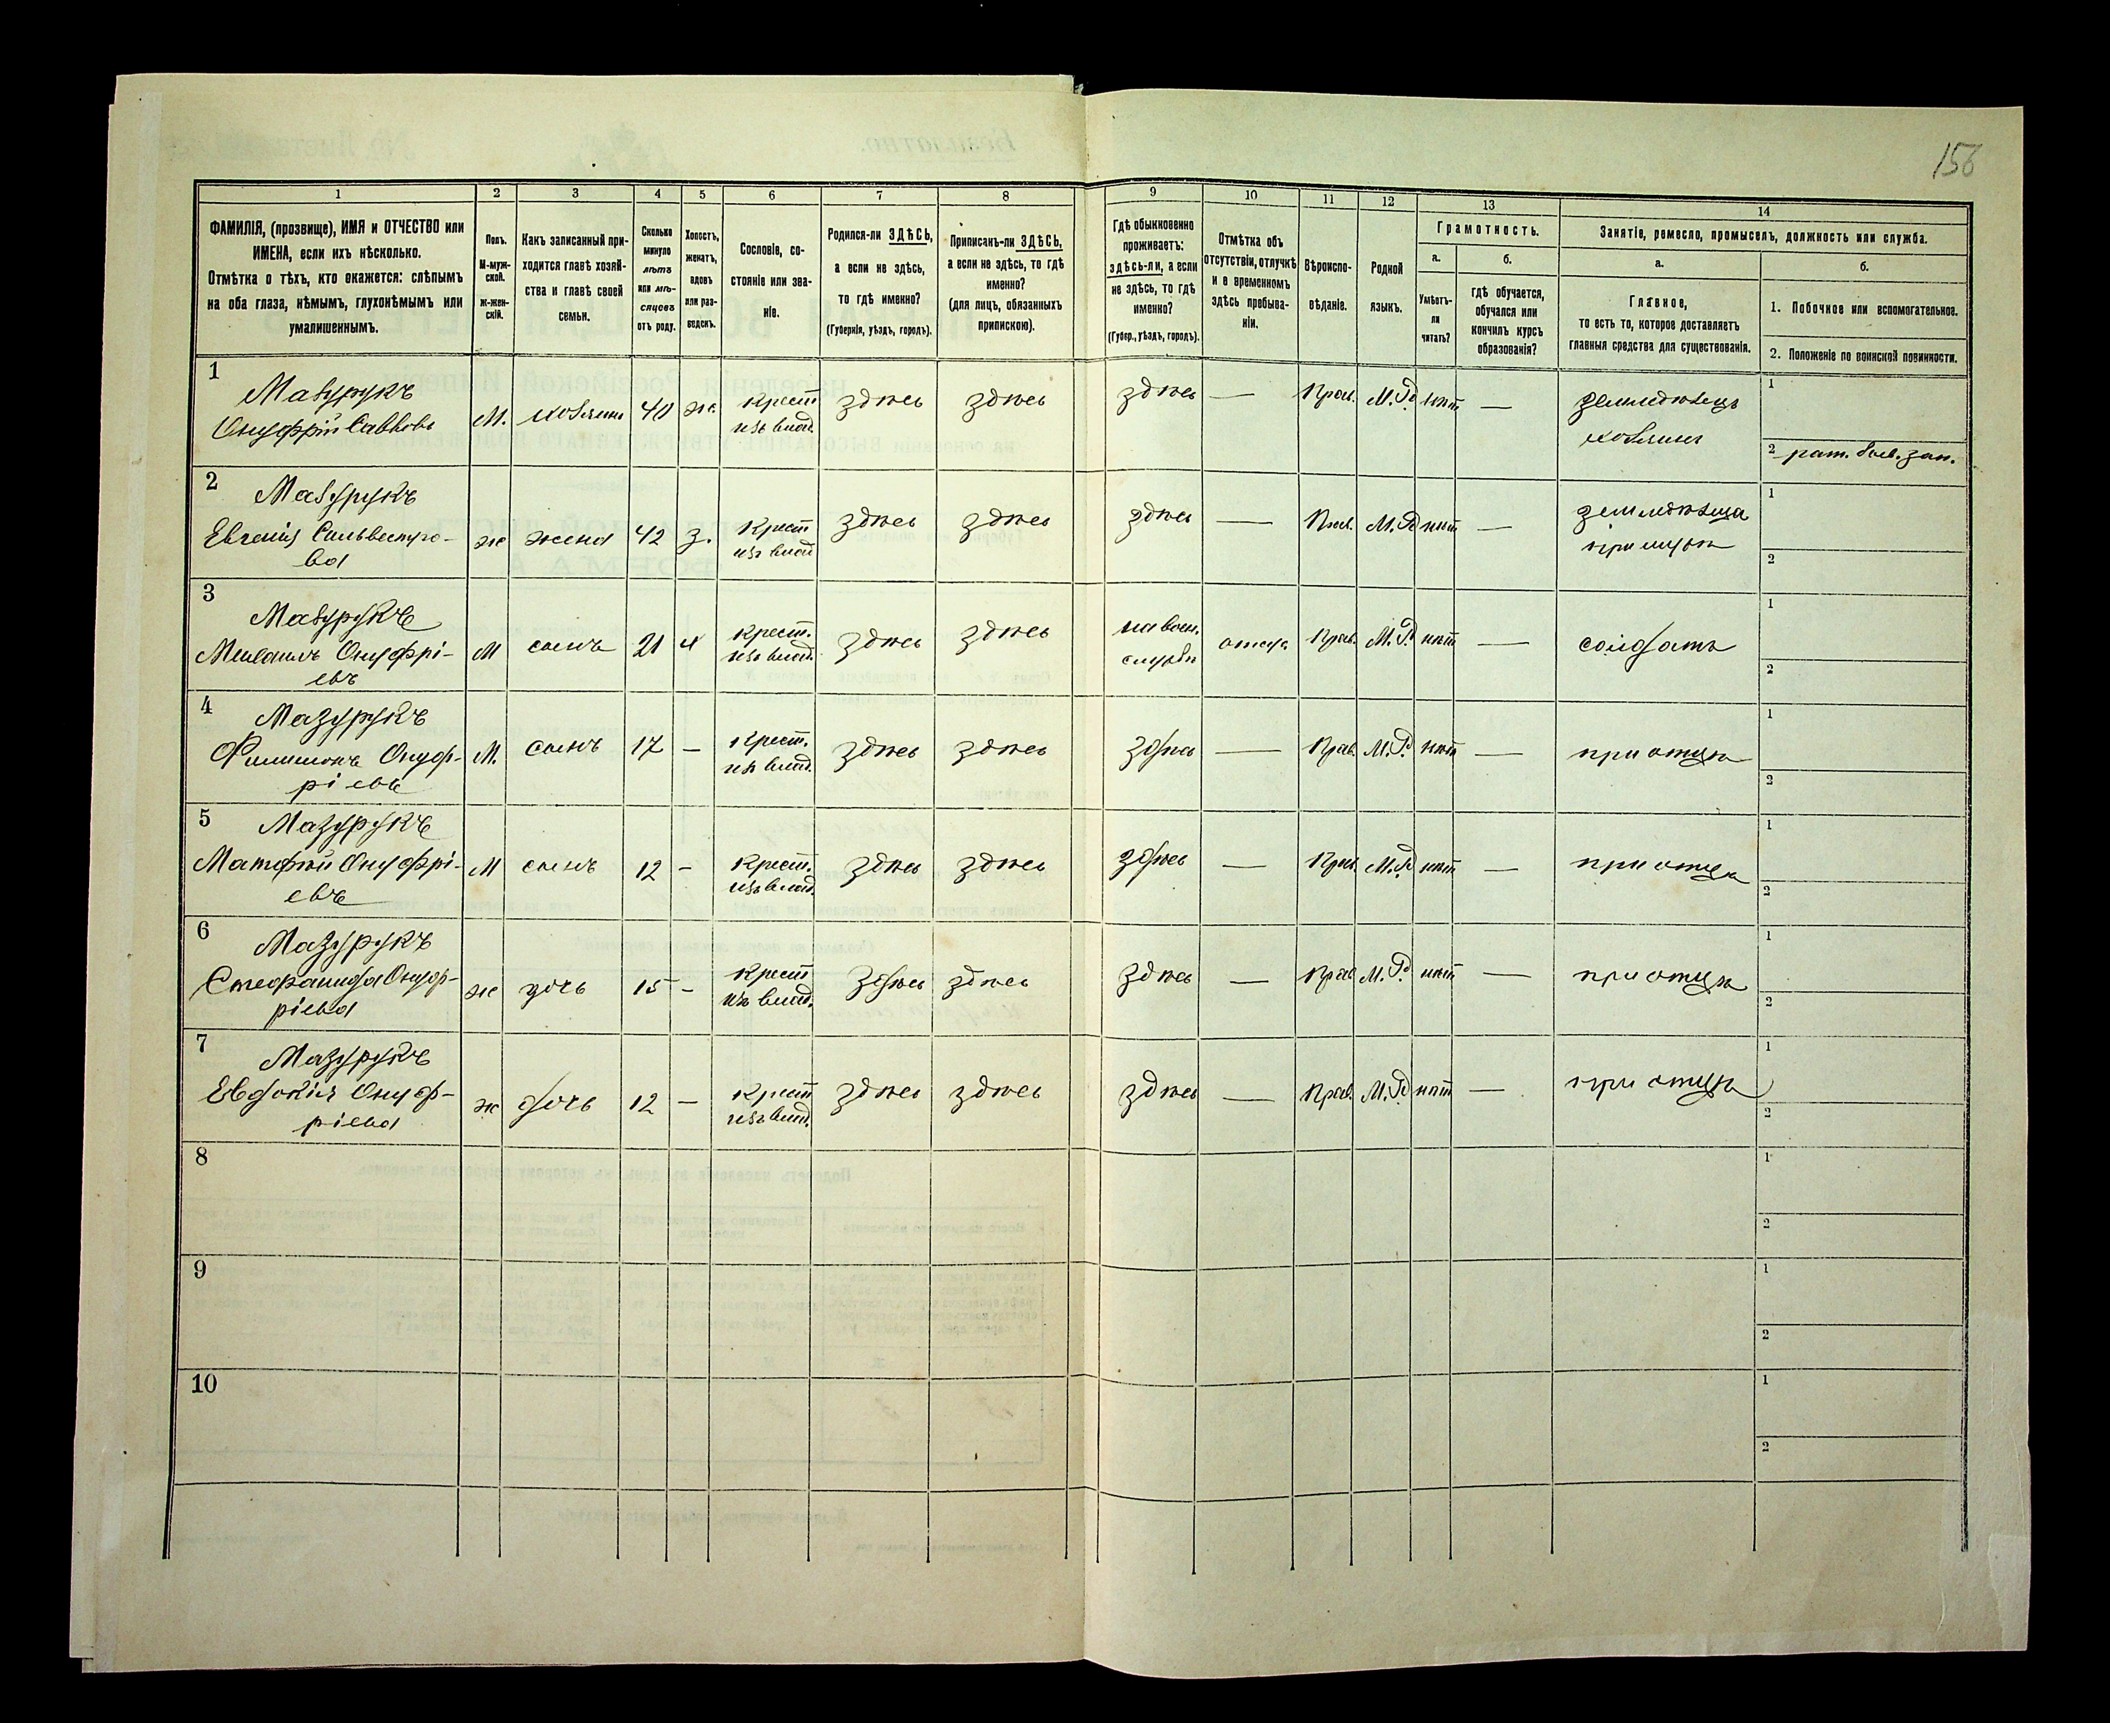 156
1
2
3
4
5
6
7
8
9
10
11
12
13
14
ФАМИЛІЯ, (прозвище), ИМЯ и ОТЧЕСТВО или
ИМЕНА, если ихъ нѣсколько.
Отмѣтка о тѣхъ, кто окажется: слѣпымъ
на оба глаза, нѣмымъ, глухонѣмымъ или
умалишеннымъ.
Полъ.
М-муж-
ской.
ж-жен-
скій.
Какъ записанный при-
ходится главѣ хозяй-
ства и главѣ своей
семьи.
Сколько
минуло
лѣтъ
или мѣ-
сяцевъ
отъ роду.
Холостъ,
женатъ,
вдовъ
или раз-
веденъ.
Сословіе, со-
стояніе или зва-
ніе.
Родился-ли ЗДѢСЬ,
а если не здѣсь,
то гдѣ именно?
(Губернія, уѣздъ, городъ).
Приписанъ-ли ЗДѢСЬ,
а если не здѣсь, то гдѣ
именно?
(для лицъ, обязанныхъ
припискою).
Гдѣ обыкновенно
проживаетъ:
здѣсь-ли, а если
не здѣсь, то гдѣ
именно?
(Губер., уѣздъ, городъ).
Отмѣтка объ
отсутствіи, отлучкѣ
и о временномъ
здѣсь пребыва-
ніи.
Вѣроиспо-
вѣданіе.
Родной
языкъ.
Грамотность.
а.
Умѣетъ-
ли
читать?
б.
гдѣ обучается,
обучался или
кончилъ курсъ
образованія?
Занятіе, ремесло, промыселъ, должность или служба.
а.
Главное,
то есть то, которое доставляетъ
главныя средства для существованія.
б.
1. Побочное или вспомогательное.
2. Положеніе по воинской повинности.
1
Мазурукъ
Онуфрій Саввовъ
М.
хозяинъ
40
ж.
Крест
изъ влад.
здѣсь
здѣсь
здѣсь
—
Прав.
М.Р.
нѣт
—
земледѣлецъ
хозяинъ
1
2 рат. зап.
2
Мазурукъ
Евгенія Сильвестро-
ва
ж
жена
42
з.
Крест
изъ влад
здѣсь
здѣсь
здѣсь
—
Прав.
М.Р
нѣт
—
при мужѣ
1
2
3
Мазурукъ
Онуфрі-
евъ
М
сынъ
21
Крест.
изъ влад.
здѣсь
здѣсь
на воен.
службѣ
отсут.
Прав.
М.Р.
нѣт
—
солдатъ
1
2
4
Мазурукъ
Филимонъ Онуф-
ріевъ
М.
сынъ
17
—
Крест.
изъ влад.
здѣсь
здѣсь
здѣсь
—
Прав.
М.Р.
нѣт
—
при отцѣ
1
2
5
Мазурукъ
Матфей Онуфрі-
евъ
М
сынъ
12
-
Крест.
изъ влад.
здѣсь
здѣсь
здѣсь
—
Прав.
М.Р.
нѣт
—
при отцѣ
1
2
6
Мазурукъ
Стефанида Онуф-
ріева
ж
дочь
15
-
Крест
изъ влад.
здѣсь
здѣсь
здѣсь
—
Прав
М.Р.
нѣт
—
при отцѣ
1
2
7
Мазурукъ
Евдокія Онуф-
ріева
ж
дочь
12
—
Крест
изъ влад.
здѣсь
здѣсь
здѣсь
—
Прав.
М.Р.
нѣт
—
при отцѣ
1
2
8
1
2
9
1
2
10
1
2